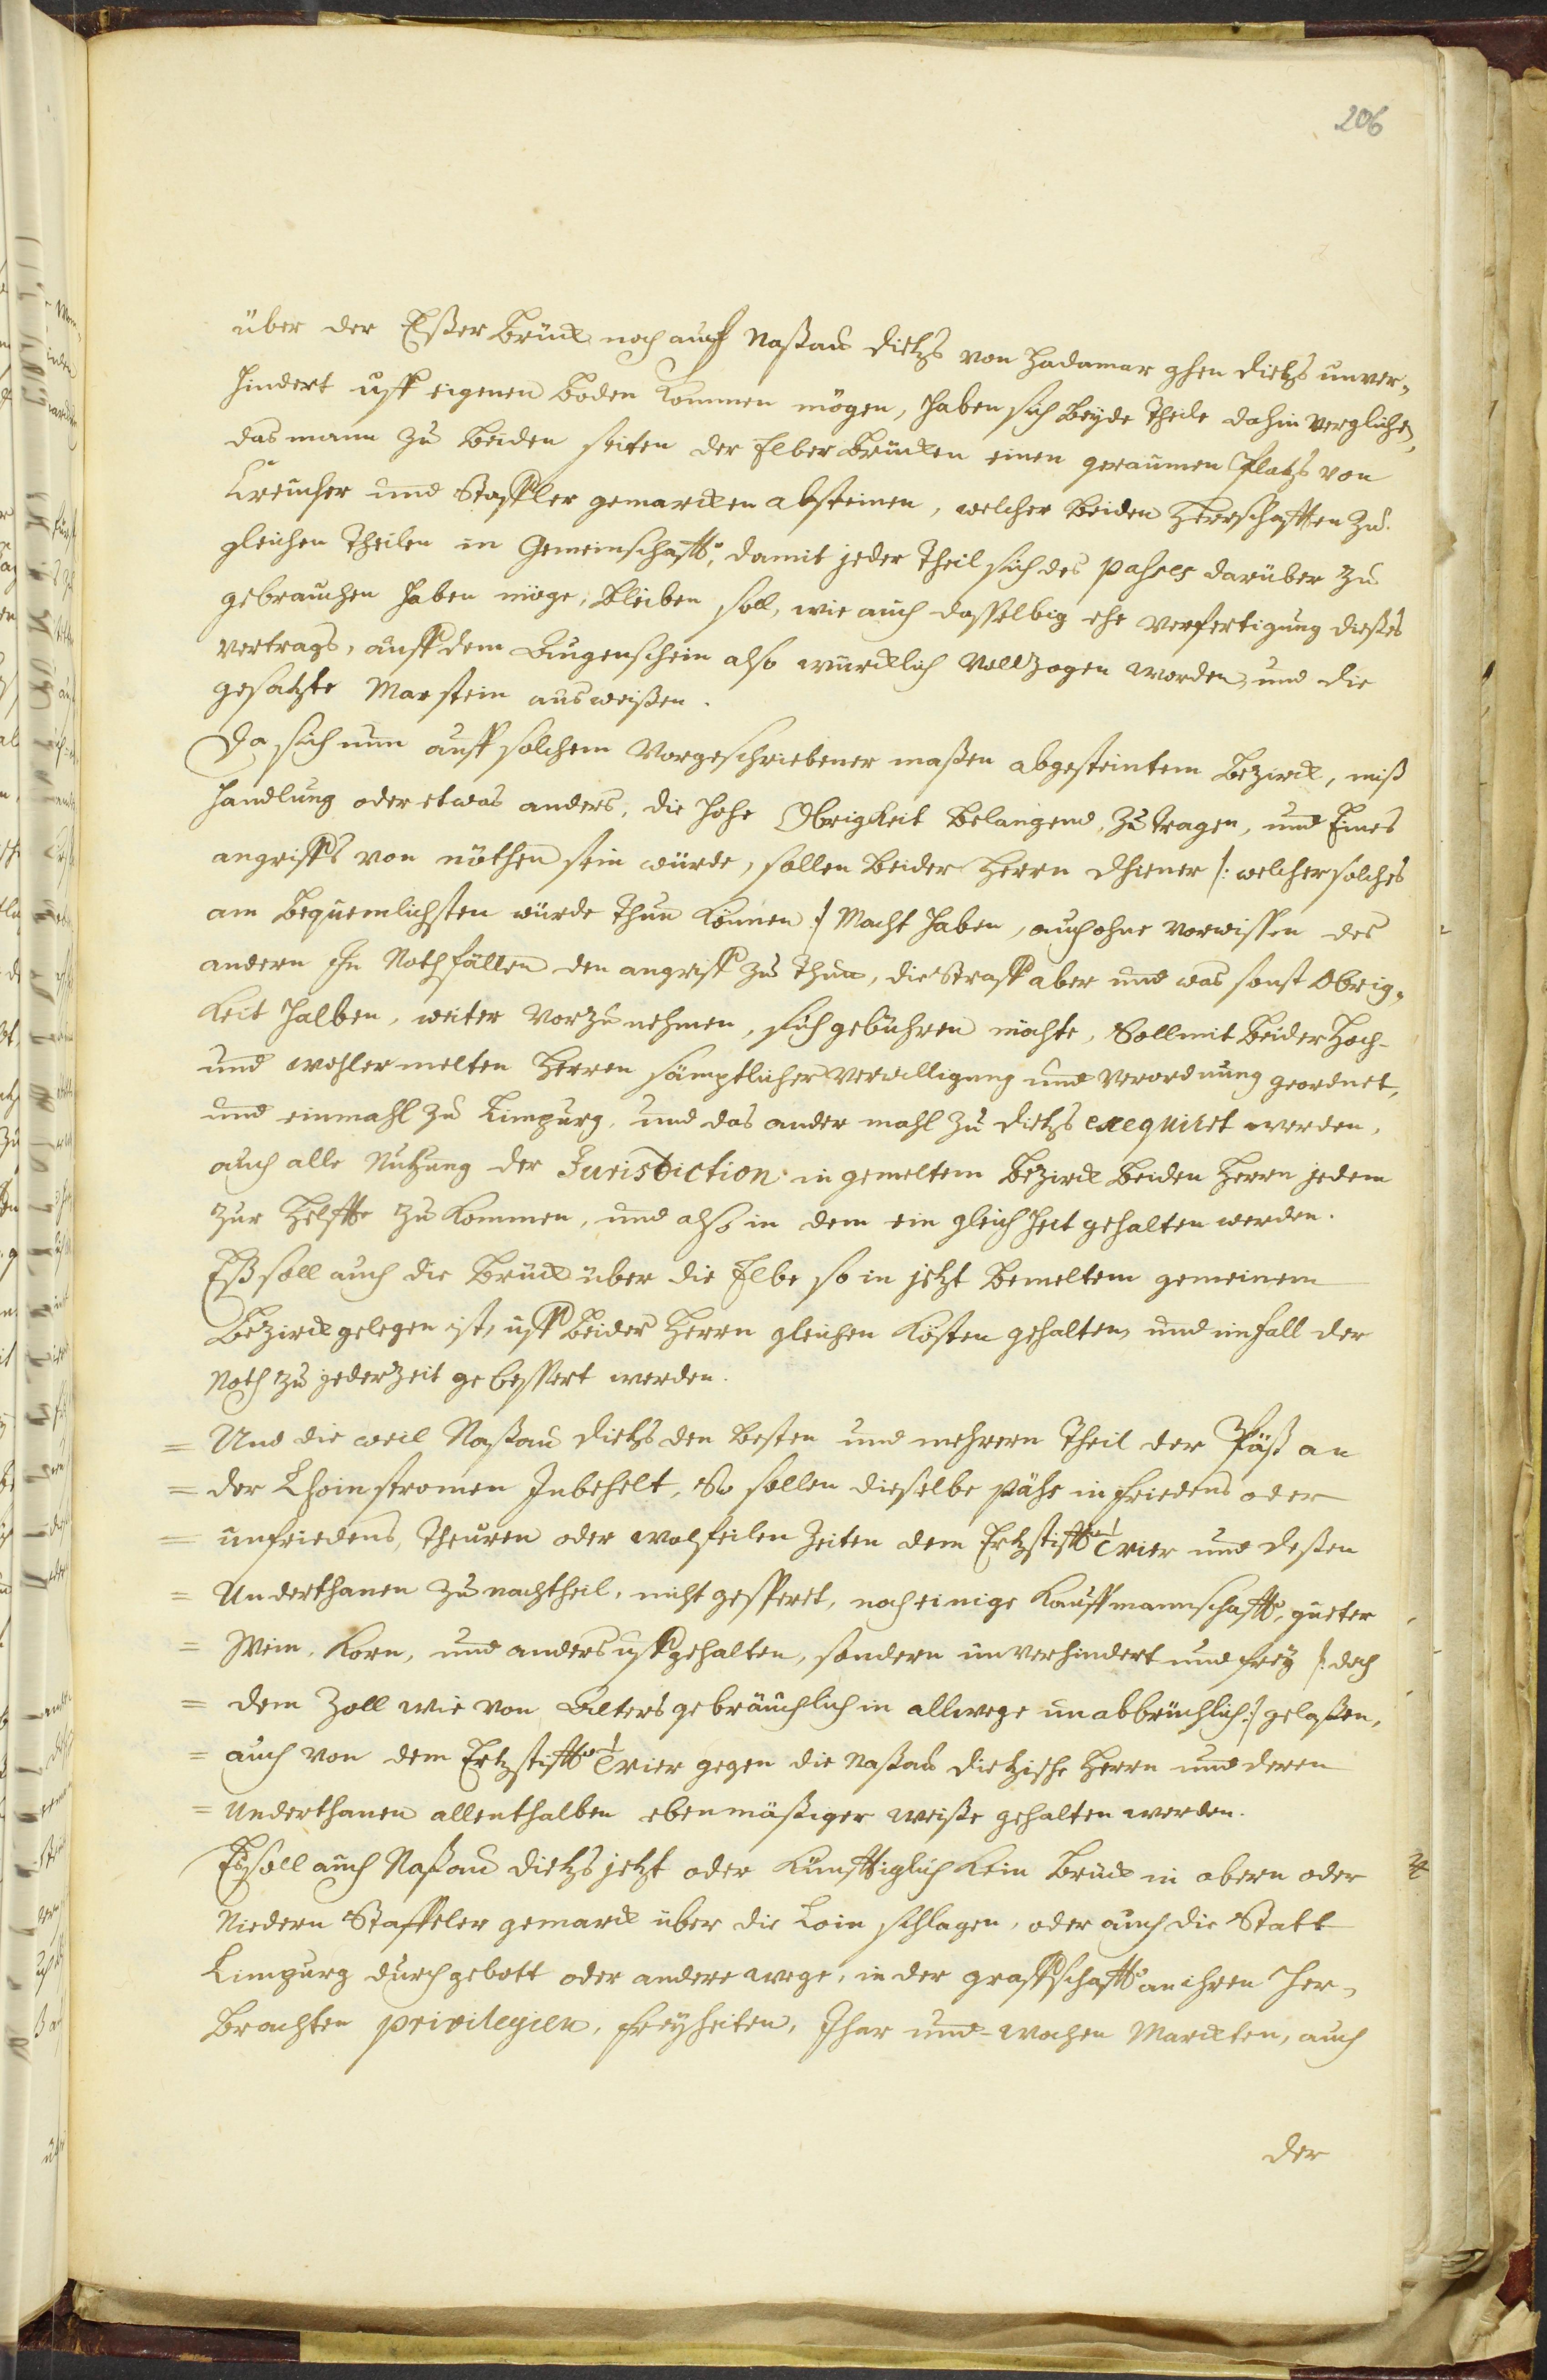 206
über der Elßer Brück noch auch Naßau Dietzs von Hadamar ghen Dietzs unver-
hindert uff eigenen Boden kommen mögen, haben sich beyde Theile dahin verglichen,
das mann zu beiden seiten der Elber Brücken einen geraumen Platzs von
Creucher und Staffler gemarcken absteinen, welcher beiden Herrschafften zu
gleichen Theilen in Gemeinschafft, damit jeder Theil sich des pahses darüber zu
gebrauchen haben möge, bleiben soll, wie auch dasselbig ehe verfertigung dießes
vertrags, auff dem Augenschein also würcklich vollzogen worden, und die
gesatzte Marstein ausweißen.
Da sich nun auff solchem vorgeschriebener maßen abgesteintem Bezirck, miß
handlung oder etwas anders, die hohe Obrigkeit belangend, zu tragen, und Eines
angriffs von nöthen sein würde, sollen beider Herrn Dhiener /: welcher solches
am bequemlichsten würde thun können :/ Macht haben, auch ohne vorwissen des
andern In Nothfällen den angriff zu thun, die Straff aber und was sonst Obrig-
keit halben, weiter vorzunehmen, sich gebühren möchte, Soll mit beider Hoch-
und wohlermelten Herren sämptlicher verwilligung und verordnung geordnet,
und einmahl zu Limpurg, und das ander mahl zu Dietzs exequiret werden,
auch alle Nutzung der Jurisdiction in gemeltem Bezirck beiden Herrn jedem
zur Helffte zu kommen, und also in dem ein gleichheit gehalten werden.
Eß soll auch die Brück über die Elbe so in jetzt bemeltem gemeinem
Bezirck gelegen ist, uff beider Herrn gleichen Kösten gehalten, und im fall der
Noth zu jederzeit gebessert werden.
= Und die weil Naßau Dietzs den besten und mehrern Theil der Päß an
= der Lhoinstromen Inbehelt, So sollen dieselbe pähs in friedens oder
= unfriedens, theuren oder wolfeilen Zeiten dem Ertzstifft Trier und deßen
= Underthanen zu nachtheil, nicht gesperrt, noch einige Kauffmannschafft, güeter
= Wein, Korn, und anders uffgehalten, sondern unverhindert und frey /: doch
= dem Zoll wie von Alters gebräuchlich in allwege unabbrüchlich :/ gelaßen,
= auch von dem Ertzstifft Trier gegen die Naßau Dietzische Herrn und deren
= Underthanen allenthalben ebenmäßiger weiße gehalten werden.
Es soll auch Naßau Dietzs jetzt oder künfftiglich kein Brück in obern oder
Niedern Staffeler gemarck über die Loin schlagen, oder auch die Statt
Limpurg durch gebott oder andere wege, in der graffschafft an ihren her-
brachten privilegien, freyheiten, Jhar und wochen Marckten, auch
der